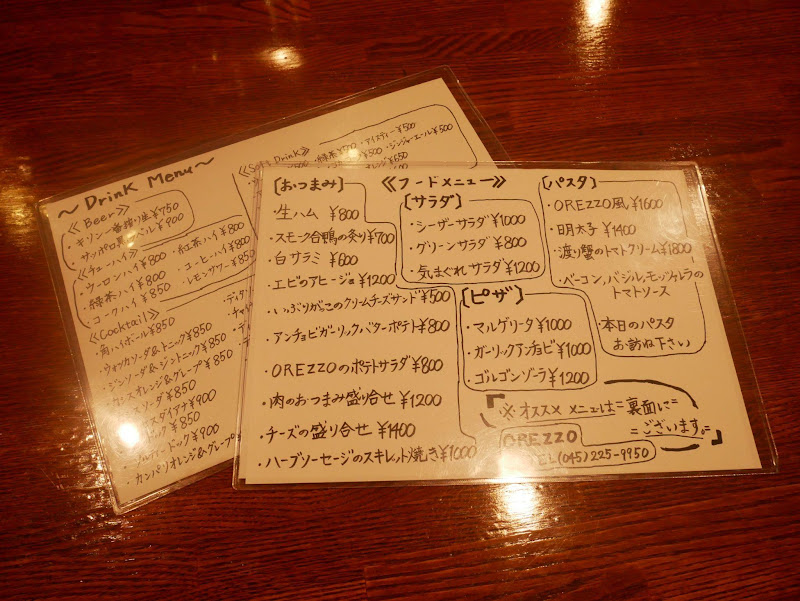 ~ Drink Menu ~
《Beer》
・キリン一番搾り生¥750
・サッポロ黒ラベル¥900
《チューハイ》
・ウーロンハイ¥800
・緑茶ハイ¥800
・コークハイ¥850
・紅茶ハイ¥800
・コーヒーハイ¥800
・レモンサワー¥850
《Cocktail》
・角ハイボール¥850
・ウォッカソーダ&トニック¥850
・ジンソーダ&ジントニック¥850
・カシスオレンジ&グレープ¥850
・カンパリオレンジ&グレープ
《Soft Drink》
・緑茶
・アイスティー¥500
・ジンジャーエール¥500
《フードメニュー》
[おつまみ]
・生ハム ¥800
・スモーク合鴨の炙り¥700
・白サラミ ¥600
・エビのアヒージョ¥1200
・いぶりがっこのクリームチーズサンド¥500
・アンチョビガーリックバターポテト¥800
・OREZZOのポテトサラダ ¥800
・肉のおつまみ盛り合せ ¥1200
・チーズの盛り合せ ¥1400
・ハーブソーセージのスキレット焼き¥1000
[サラダ]
・シーザーサラダ¥1000
・グリーンサラダ ¥800
・気まぐれサラダ¥1200
[ピザ]
・マルゲリータ ¥1000
・ガーリックアンチョビ¥1000
・ゴルゴンゾーラ ¥1200
[パスタ]
・OREZZO風¥1600
・明太子 ¥1400
・渡り蟹のトマトクリーム¥1800
・ベーコン,バジル,モッツァレラの
トマトソース
・本日のパスタ
お訪ね下さい
『※オススメメニューは=裏面に=
=ございます。=』
OREZZO
TEL(045)225-9950